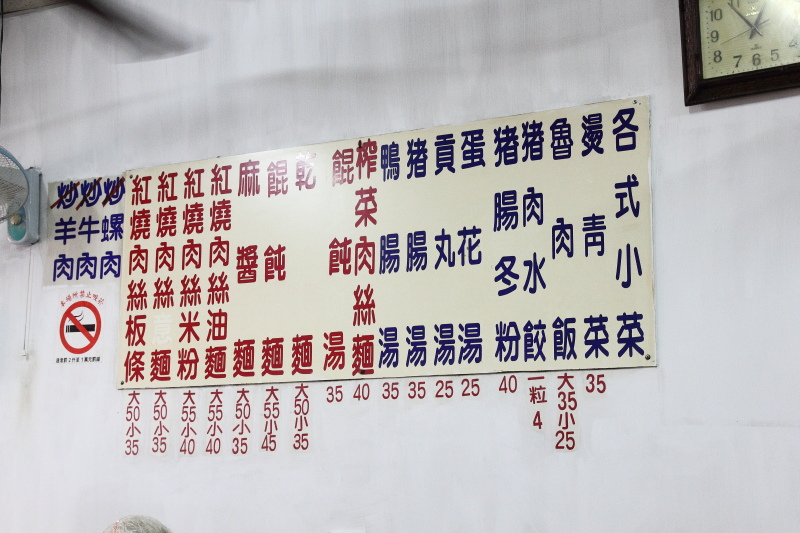 各式小菜
燙青菜 35
魯肉飯 大35小25
猪肉水餃 一粒4
猪腸冬粉 40
蛋花湯 25
貢丸湯 25
猪腸湯 35
鴨腸湯 35
榨菜肉絲麵 40
餛飩湯 35
乾麵 大50小35
餛飩麵 大55小45
麻醬麵 大50小35
紅燒肉絲油麵 大55小40
紅燒肉絲米粉 大55小40
紅燒肉絲意麵 大50小35
紅燒肉絲板條 大50小35
炒螺肉
炒牛肉
炒羊肉
本場所禁止吸菸
10
9
8
7
6
5